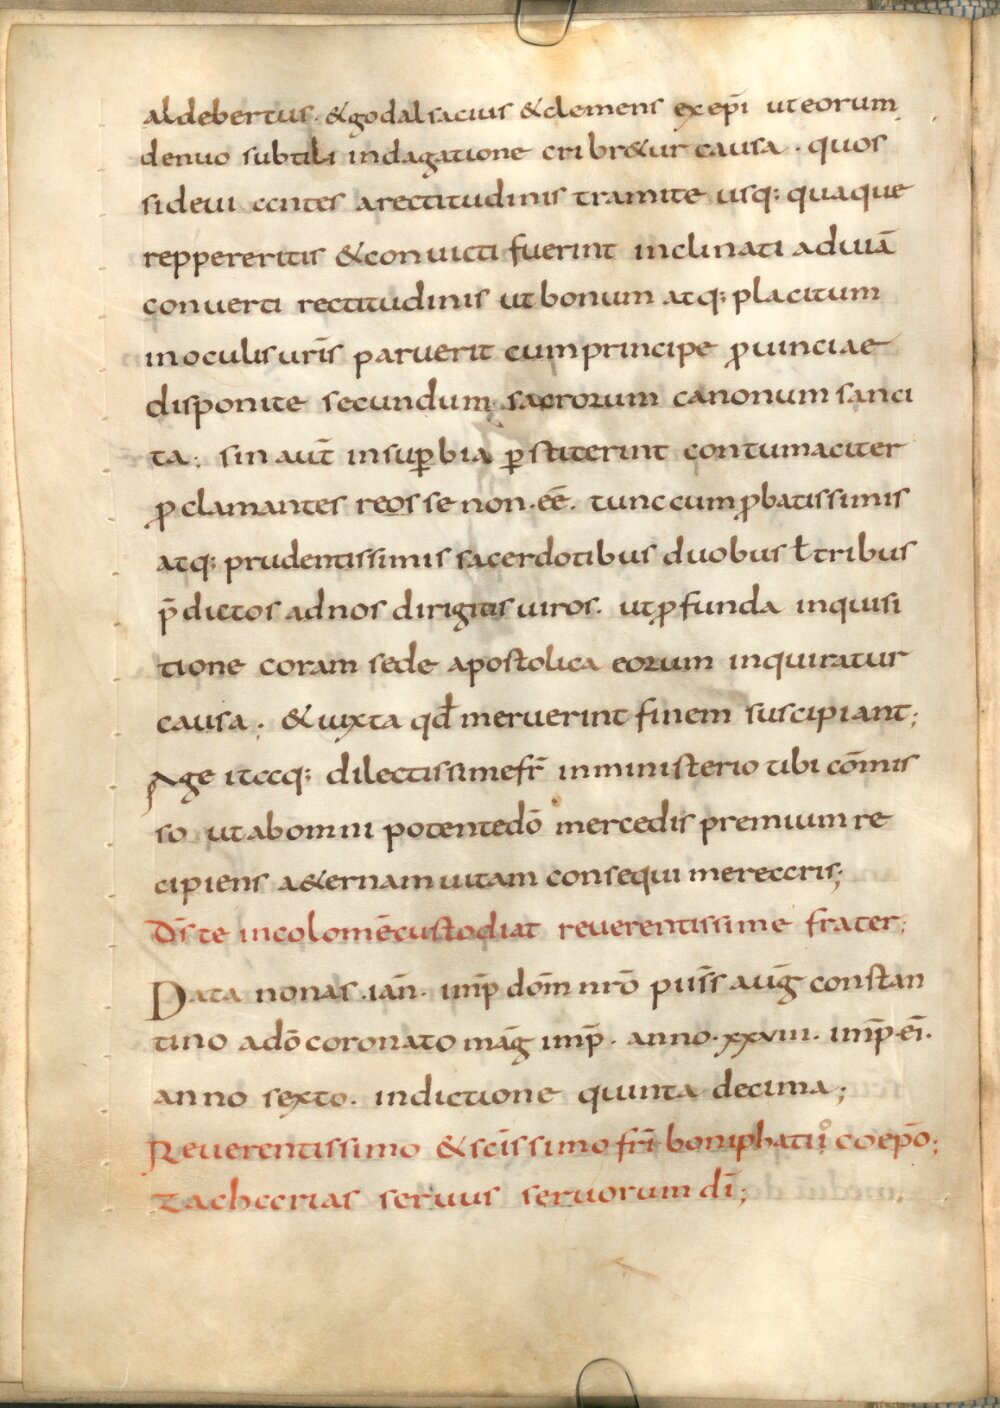 aldebertus· &godalsacius &clemens exep̄i uteorum
denuo subtili indagatione cribr&ur causa · quos
sideui ccntes arectitudinis tramite usq; quaque
reppereritis &conuicti fuerint inclinati aduiā
conuerti rectitudinis utbonum atq; placitum
inoculisur̄is paruerit cumprincipe ꝓuinciae
disponite secundum sacrorum canonum sanci
ta; sin aut̄ insuꝑbia ꝑstiterint contumaciter
ꝓclamantes reos se non·eē· tunc cum ꝓbatissimis
atq; prudentissimis sacerdotibus duobus ƚ tribus
p̄dictos adnos dirigitis uiros· utꝓfunda inquisi
tione coram sede apostolica eorum inquiratur
causa; &iuxta qd̄ meruerint finem suscipiant;
Age itccq; dilectissimefr̄ inministerio tibi cōmis
so utabomni potentedō mercedis premium re
cipiens a&ernam uitam consequi mereccris;
Dn̄s te incolomēcustodiat reuerentissime frater;
Data nonas·ian̄· imp̄ dom̄ nrō piis̄s aug̅ constan
tino adō coronato mag̅ imp̄· anno·xxviii· imp̄·ei̅·
anno sexto· indictione quinta decima;
Reuerentissimo &sc̄issimo fr̄i boniphatiͦ coep̄o;
Zachccrias seruus seruorum dī;